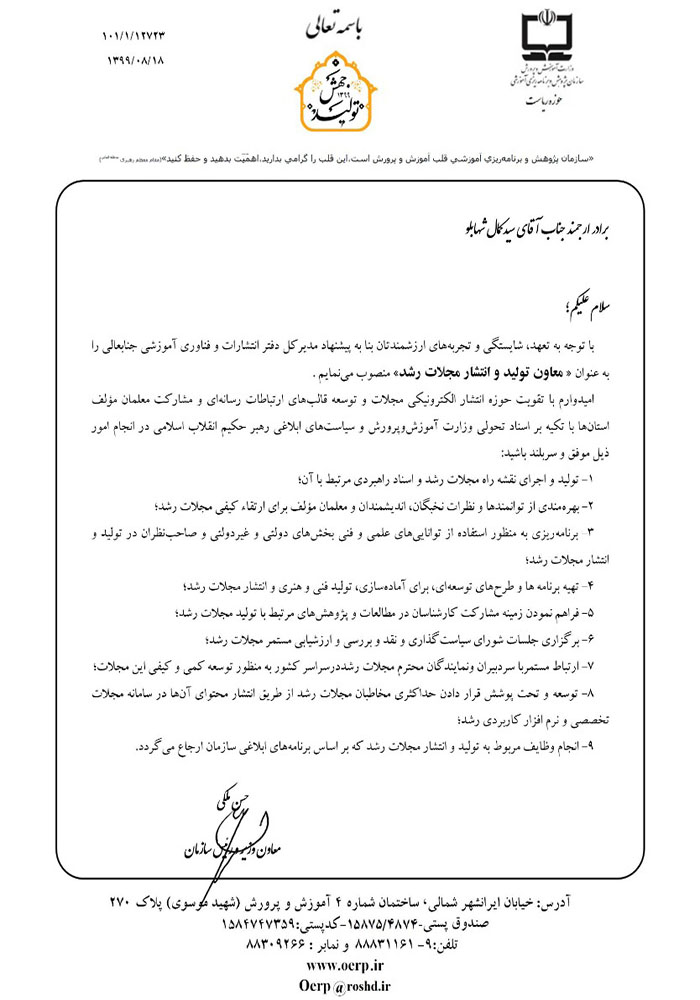 باسمه تعالی
۱۰۱/۱/۱۲۷۲۳
۱۳۹۹/۰۸/۱۸
جهش
۱۳۹۹
تولید
وزارت آموزش و پرورش
سازمان پژوهش و برنامه ریزی آموزشی
حوزه ریاست
«سازمان پژوهش و برنامه‌ریزي آموزشي قلب آموزش و پرورش است.این قلب را گرامي بدارید.اهمیّت بدهید و حفظ کنید»(مقام معظم رهبری مدظله العالی)
برادر ارجمند جناب آقای سید کمال شهابلو
سلام علیکم؛
با توجه به تعهد، شایستگی و تجربه‌های ارزشمندتان بنا به پیشنهاد مدیرکل دفتر انتشارات و فناوری آموزشی جنابعالی را
به عنوان « معاون تولید و انتشار مجلات رشد» منصوب می‌نمایم .
امیدوارم با تقویت حوزه انتشار الکترونیکی مجلات و توسعه قالب‌های ارتباطات رسانه‌ای و مشارکت معلمان مؤلف
استان‌ها با تکیه بر اسناد تحولی وزارت آموزش‌وپرورش و سیاست‌های ابلاغی رهبر حکیم انقلاب اسلامی در انجام امور
ذیل موفق و سربلند باشید:
۱- تولید و اجرای نقشه راه مجلات رشد و اسناد راهبردی مرتبط با آن؛
۲- بهره‌مندی از توانمندها و نظرات نخبگان، اندیشمندان و معلمان مؤلف برای ارتقاء کیفی مجلات رشد؛
۳- برنامه‌ریزی به منظور استفاده از توانایی‌های علمی و فنی بخش‌های دولتی و غیردولتی و صاحب‌نظران در تولید و
انتشار مجلات رشد؛
۴- تهیه برنامه ها و طرح‌های توسعه‌ای، برای آماده‌سازی، تولید فنی و هنری و انتشار مجلات رشد؛
۵- فراهم نمودن زمینه مشارکت کارشناسان در مطالعات و پژوهش‌های مرتبط با تولید مجلات رشد؛
۶- برگزاری جلسات شورای سیاست‌گذاری و نقد و بررسی و ارزشیابی مستمر مجلات رشد؛
۷- ارتباط مستمربا سردبیران ونمایندگان محترم مجلات رشددرسراسر کشور به منظور توسعه کمی و کیفی این مجلات؛
۸- توسعه و تحت پوشش قرار دادن حداکثری مخاطبان مجلات رشد از طریق انتشار محتوای آن‌ها در سامانه مجلات
تخصصی و نرم افزار کاربردی رشد؛
۹- انجام وظایف مربوط به تولید و انتشار مجلات رشد که بر اساس برنامه‌های ابلاغی سازمان ارجاع می‌گردد.
حسن ملکی
معاون وزیر و رئیس سازمان
آدرس: خیابان ایرانشهر شمالی، ساختمان شماره ۴ آموزش و پرورش (شهید موسوی) پلاک ۲۷۰
صندوق پستی-۱۵۸۷۵/۴۸۷۴-کدپستی:۱۵۸۴۷۴۷۳۵۹
تلفن:۹- ۸۸۸۳۱۱۶۱ و نمابر : ۸۸۳۰۹۲۶۶
www.oerp.ir
Oerp@roshd.ir